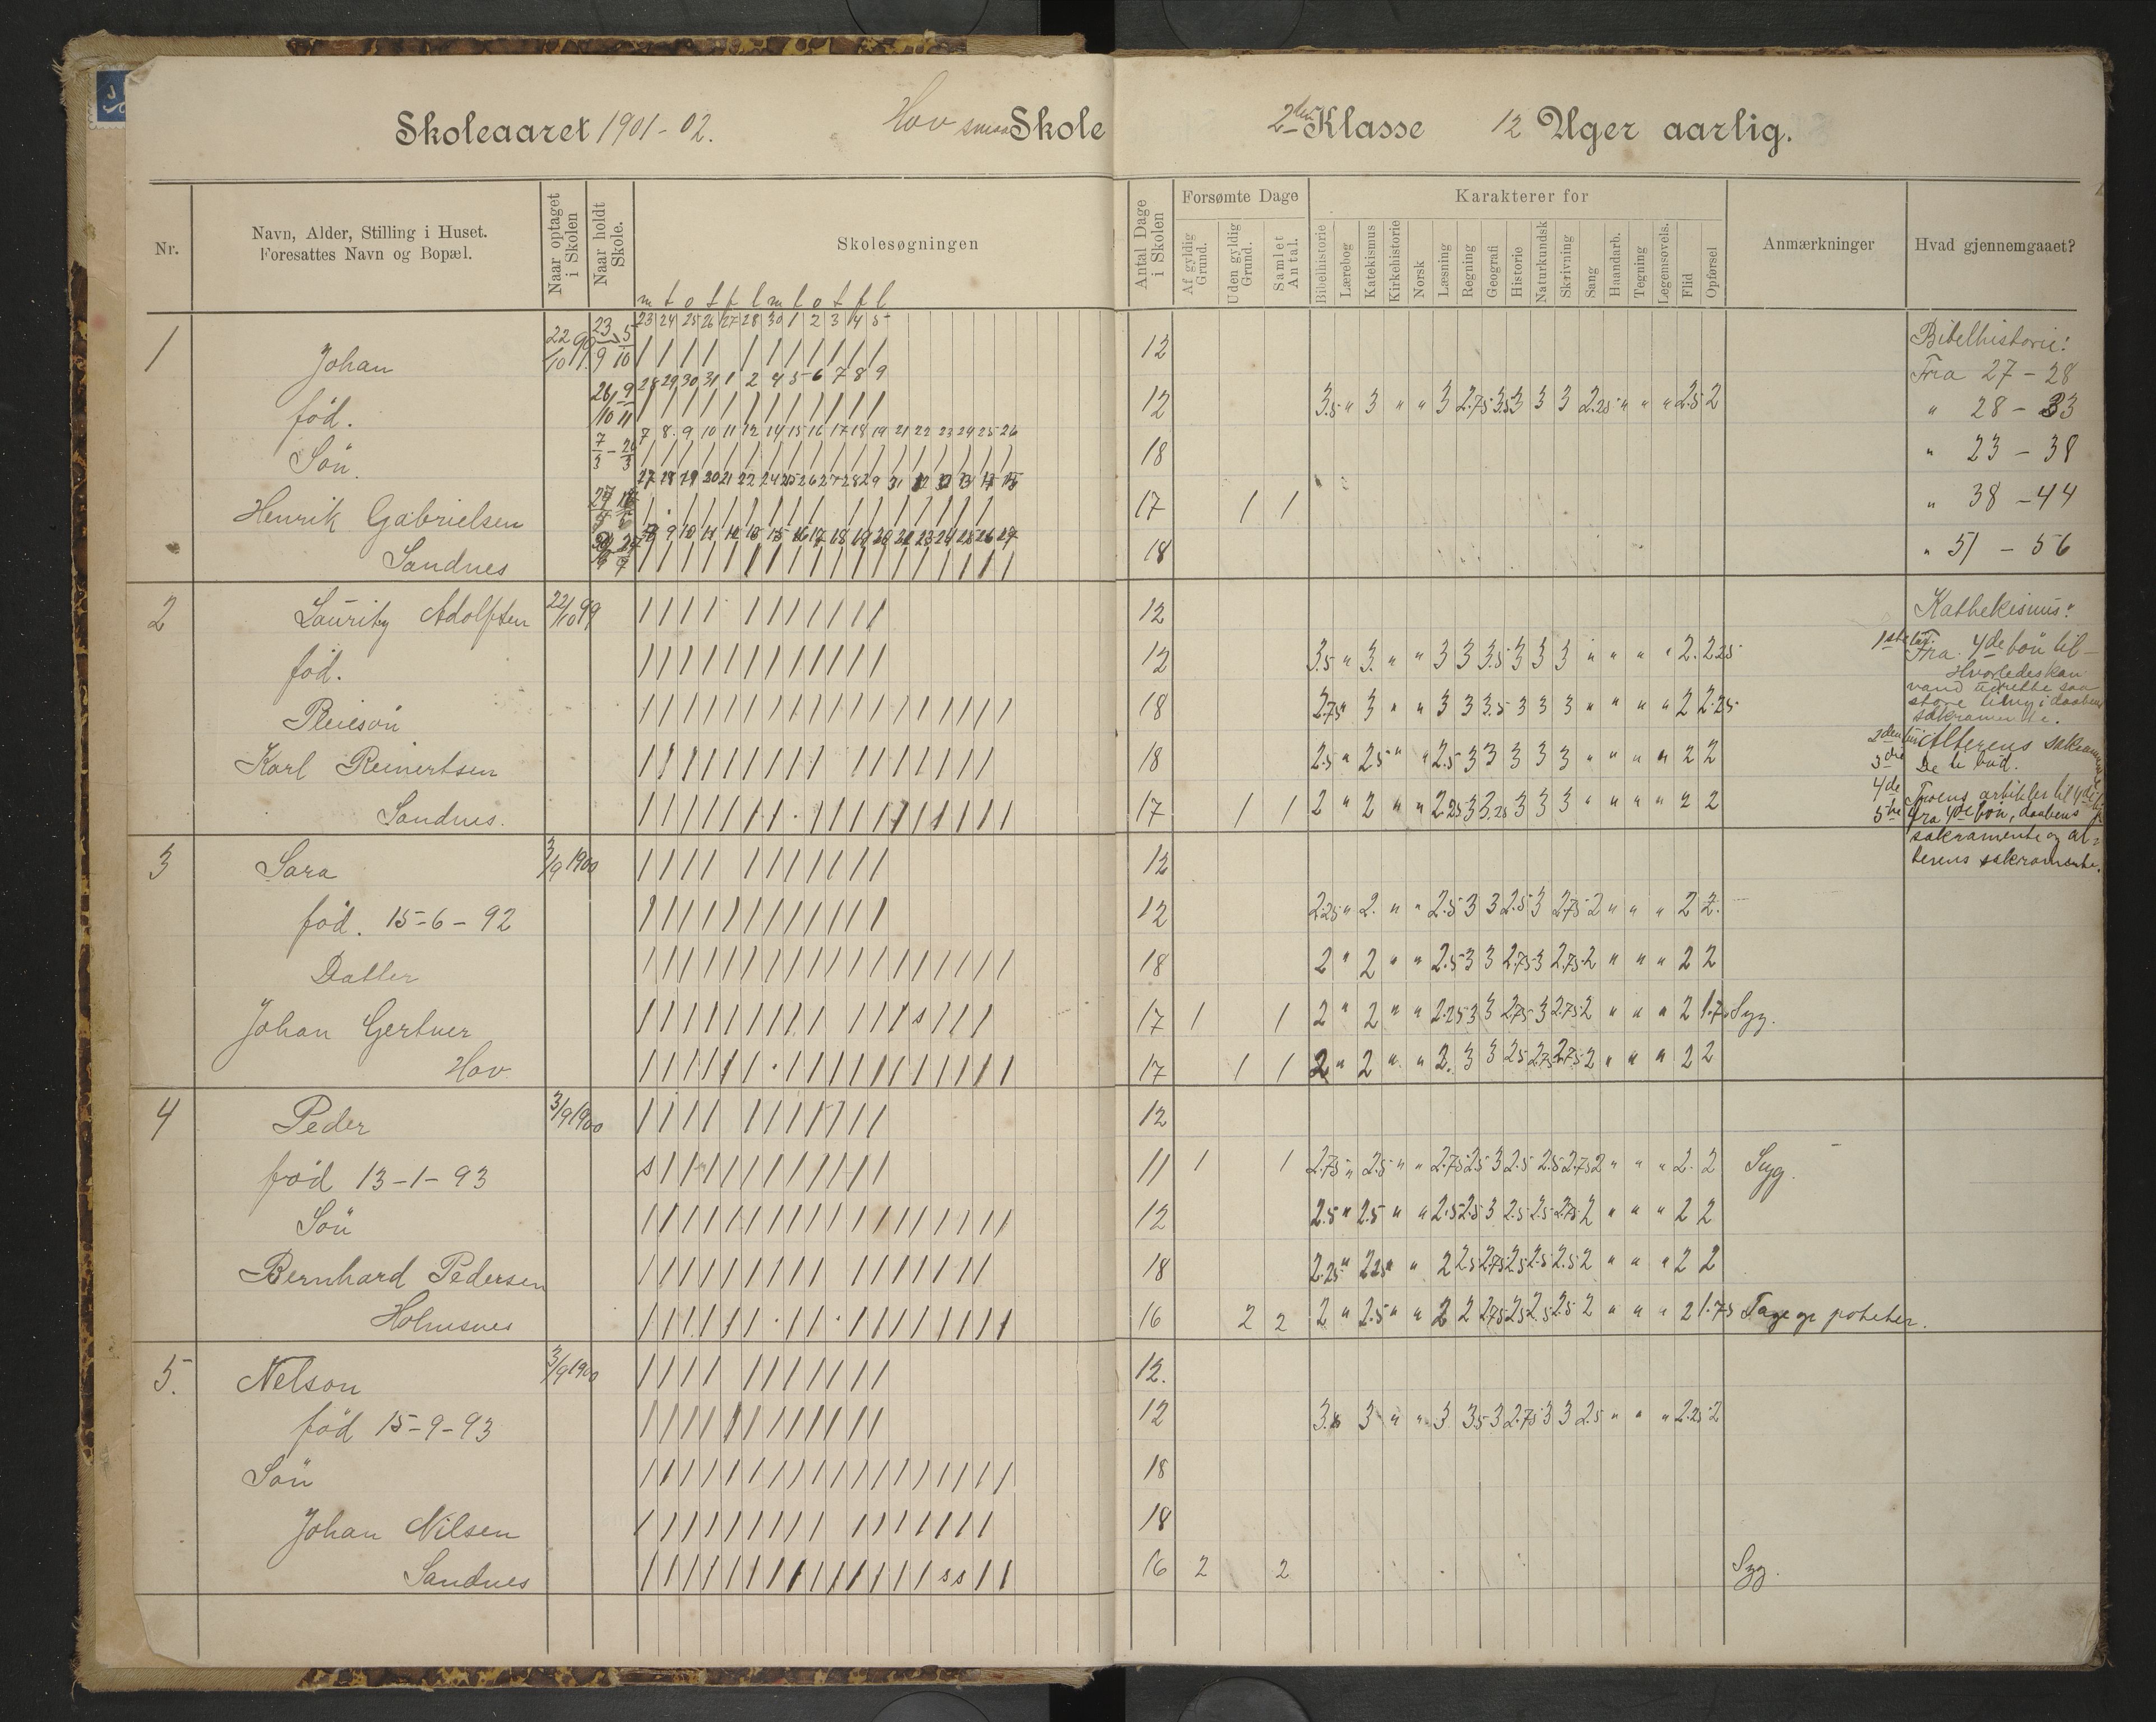 Skoleaaret 1901-02. Hov smaa Skole 2den Klasse 12 Uger aarlig.
Nr.
Navn, Alder, Stilling i Huset.
Foresattes Navn og Bopæl.
Naar optaget i Skolen
Naar holdt Skole.
Skolesøgningen
m t o t f l m t o t f l
Antal Dage i Skolen
Forsømte Dage
Af gyldig Grund.
Uden gyldig Grund.
Samlet Antal.
Karakterer for
Bibelhistorie
Lærebog
Katekismus
Kirkehistorie
Norsk
Læsning
Regning
Geografi
Historie
Naturkundsk
Skrivning
Sang
Haandarb.
Tegning
Legemsøvels.
Flid
Opførsel
Anmærkninger
Hvad gjennemgaaet?
23 24 25 26 27 28 30 1 2 3 4 5
1 Johan 12 Bibelhistorie:
Fra 27-28
28 29 30 31 1 2 4 5 6 7 8 9
fød. 12 3.5 " 3 " " 3 2.75 3.5 3 3 3 2.25 " " " 2.5 2 " 28-33
7 8 9 10 11 12 14 15 16 17 18 19 21 22 23 24 25 26
Søn. 18 " 23-38
Henrik Gabrielsen 17 1 1 " 38-44
Sandnes 18 " 51-56
2 Lauritz Adolfsen 22/10 99 12 Kathekismus:
fød. 12 3.5 " 3 " " 3 3 3.5 3 3 3 " " " " 2. 2.25 Fra 4de bön til
Hvorledes kan
vand udrette saa
store ting i daabens
sakramente.
Pleiesön 18 2.75 " 3 " " 3 3 3.5 3 3 3 " " " " 2 2.25
Karl Reinertsen 18 2.5 " 2.5 " " 2.5 3 3 3 3 3 " " " " 2 2 Alterens sakramente
3die De ti bud.
Sandnes. 17 1 1 2 " 2 " " 2.25 3 3.25 3 3 3 " " " " 2 2 4de Troens artikler til 4de
5te fra 4de bön, daabens
sakramente og al-
terens sakramente.
3 Sara 3/9 1900 12
fød. 15-6-92 12 2.25 " 2. " " 2.5 3 3 2.5 3 2.75 2 " " " 2 2.
Datter 18 2 " 2 " " 2.5 3 3 2.75 3 2.75 2 " " " 2 2
Johan Gertner 17 1 1 2 " 2 " " 2.25 3 3 2.75 3 2.75 2 " " " 2 1.75 Syg.
Hov 17 1 1 2 " 2 " " 2. 3 3 2.5 2.75 2.75 2 " " " 2 2
4 Peder 3/9 1900 12
född 13-1-93 11 1 1 2.75 " 2.5 " " 2.75 2.5 3 2.5 2.5 2.75 2 " " " 2. 2 Syg.
Sön 12 2.5 " 2.5 " " 2.5 2.5 3 2.5 2.5 2.75 2 " " " 2 2
Bernhard Pedersen 18 2.25 " 2.25 " " 2 2.5 2.75 2.5 2.5 2.5 2 " " " 2 2
Holmsnes 16 2 2 2 " 2.5 " " 2 2 2.75 2.5 2.5 2.5 2 " " " 2 1.75 Tage op poteter.
5. Nelson 3/9 1900 12.
född 15-9-93 12 3 3 " " 3 3.5 3 2.75 3 3 2.5 " " " 2.25 2
Sön 18
Johan Nilsen 18
Sandnes 16 2 2 Syg.